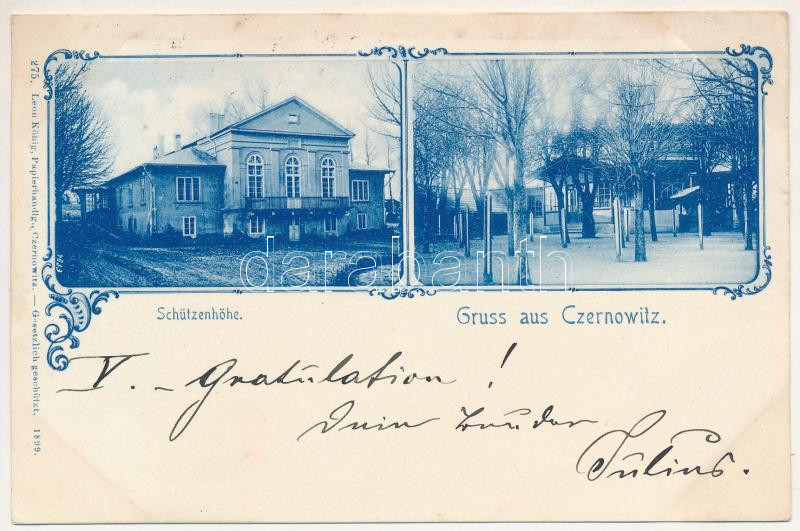 275. Leon König, Papierhandlg., Czernowitz. — Gesetzlich geschützt. 1899.
Schützenhöhe.
Gruss aus Czernowitz.
darabanth
V. – Gratulation!
Dein Bruder
Julius.